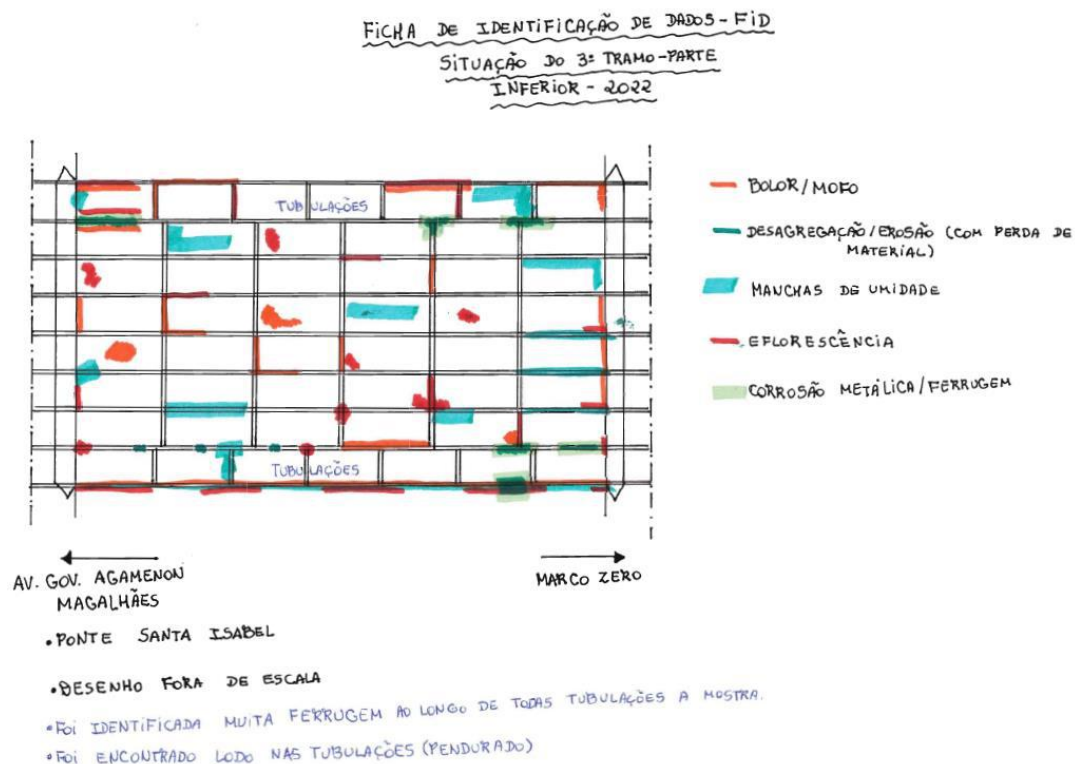 FICHA DE IDENTIFICAÇÃO DE DADOS - FID
SITUAÇÃO DO 3º TRAMO - PARTE
INFERIOR - 2022
BOLOR/MOFO
TUBULAÇÕES
DESAGREGAÇÃO/EROSÃO (COM PERDA DE
MATERIAL)
MANCHAS DE UMIDADE
EFLORESCÊNCIA
CORROSÃO METÁLICA/FERRUGEM
TUBULAÇÕES
AV. GOV. AGAMENON
MAGALHÃES
MARCO ZERO
• PONTE SANTA ISABEL
• DESENHO FORA DE ESCALA
• FOI IDENTIFICADA MUITA FERRUGEM AO LONGO DE TODAS TUBULAÇÕES A MOSTRA.
• FOI ENCONTRADO LODO NAS TUBULAÇÕES (PENDURADO)